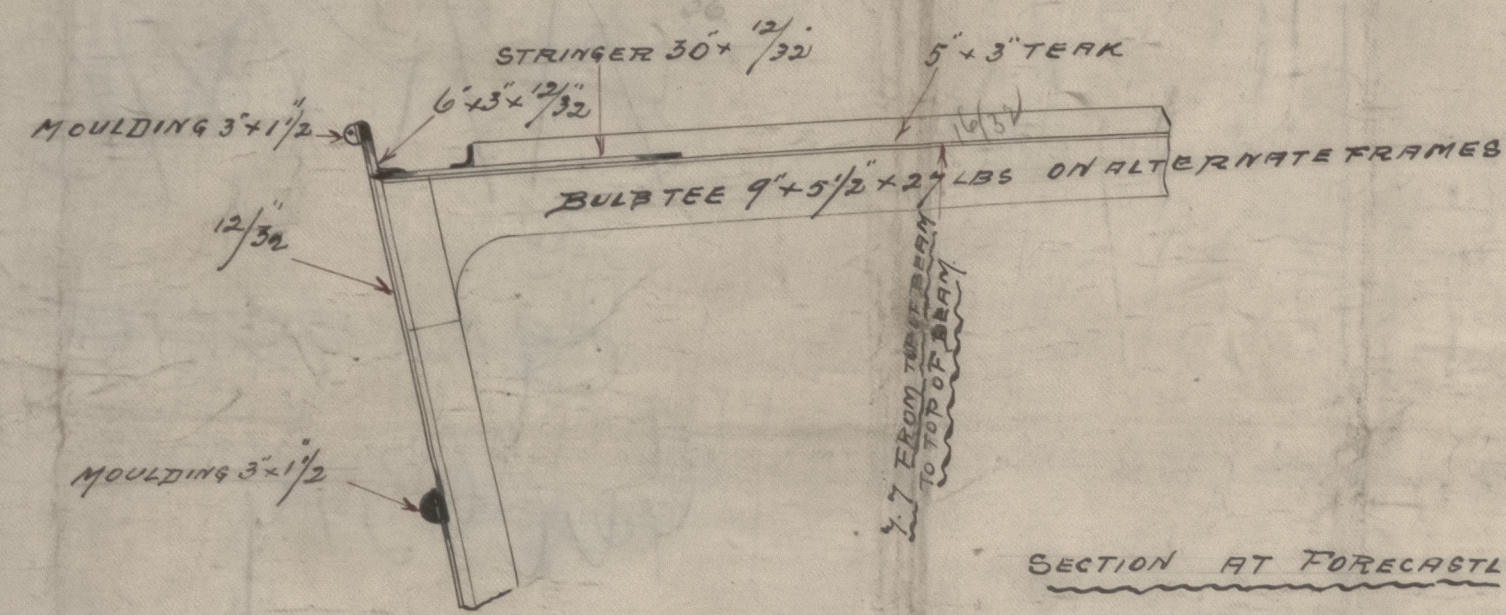 STRINGER 30" × 12/32"
5" × 3" TEAK
6" × 3" × 12/32"
MOULDING 3" × 1 1/2"
16/32
BULB TEE 9" × 5 1/2" × 27 LBS ON ALTERNATE FRAMES
12/32"
7.7 FROM TOP OF BEAM
TO TOP OF BEAM
MOULDING 3" × 1 1/2"
SECTION AT FORECASTL